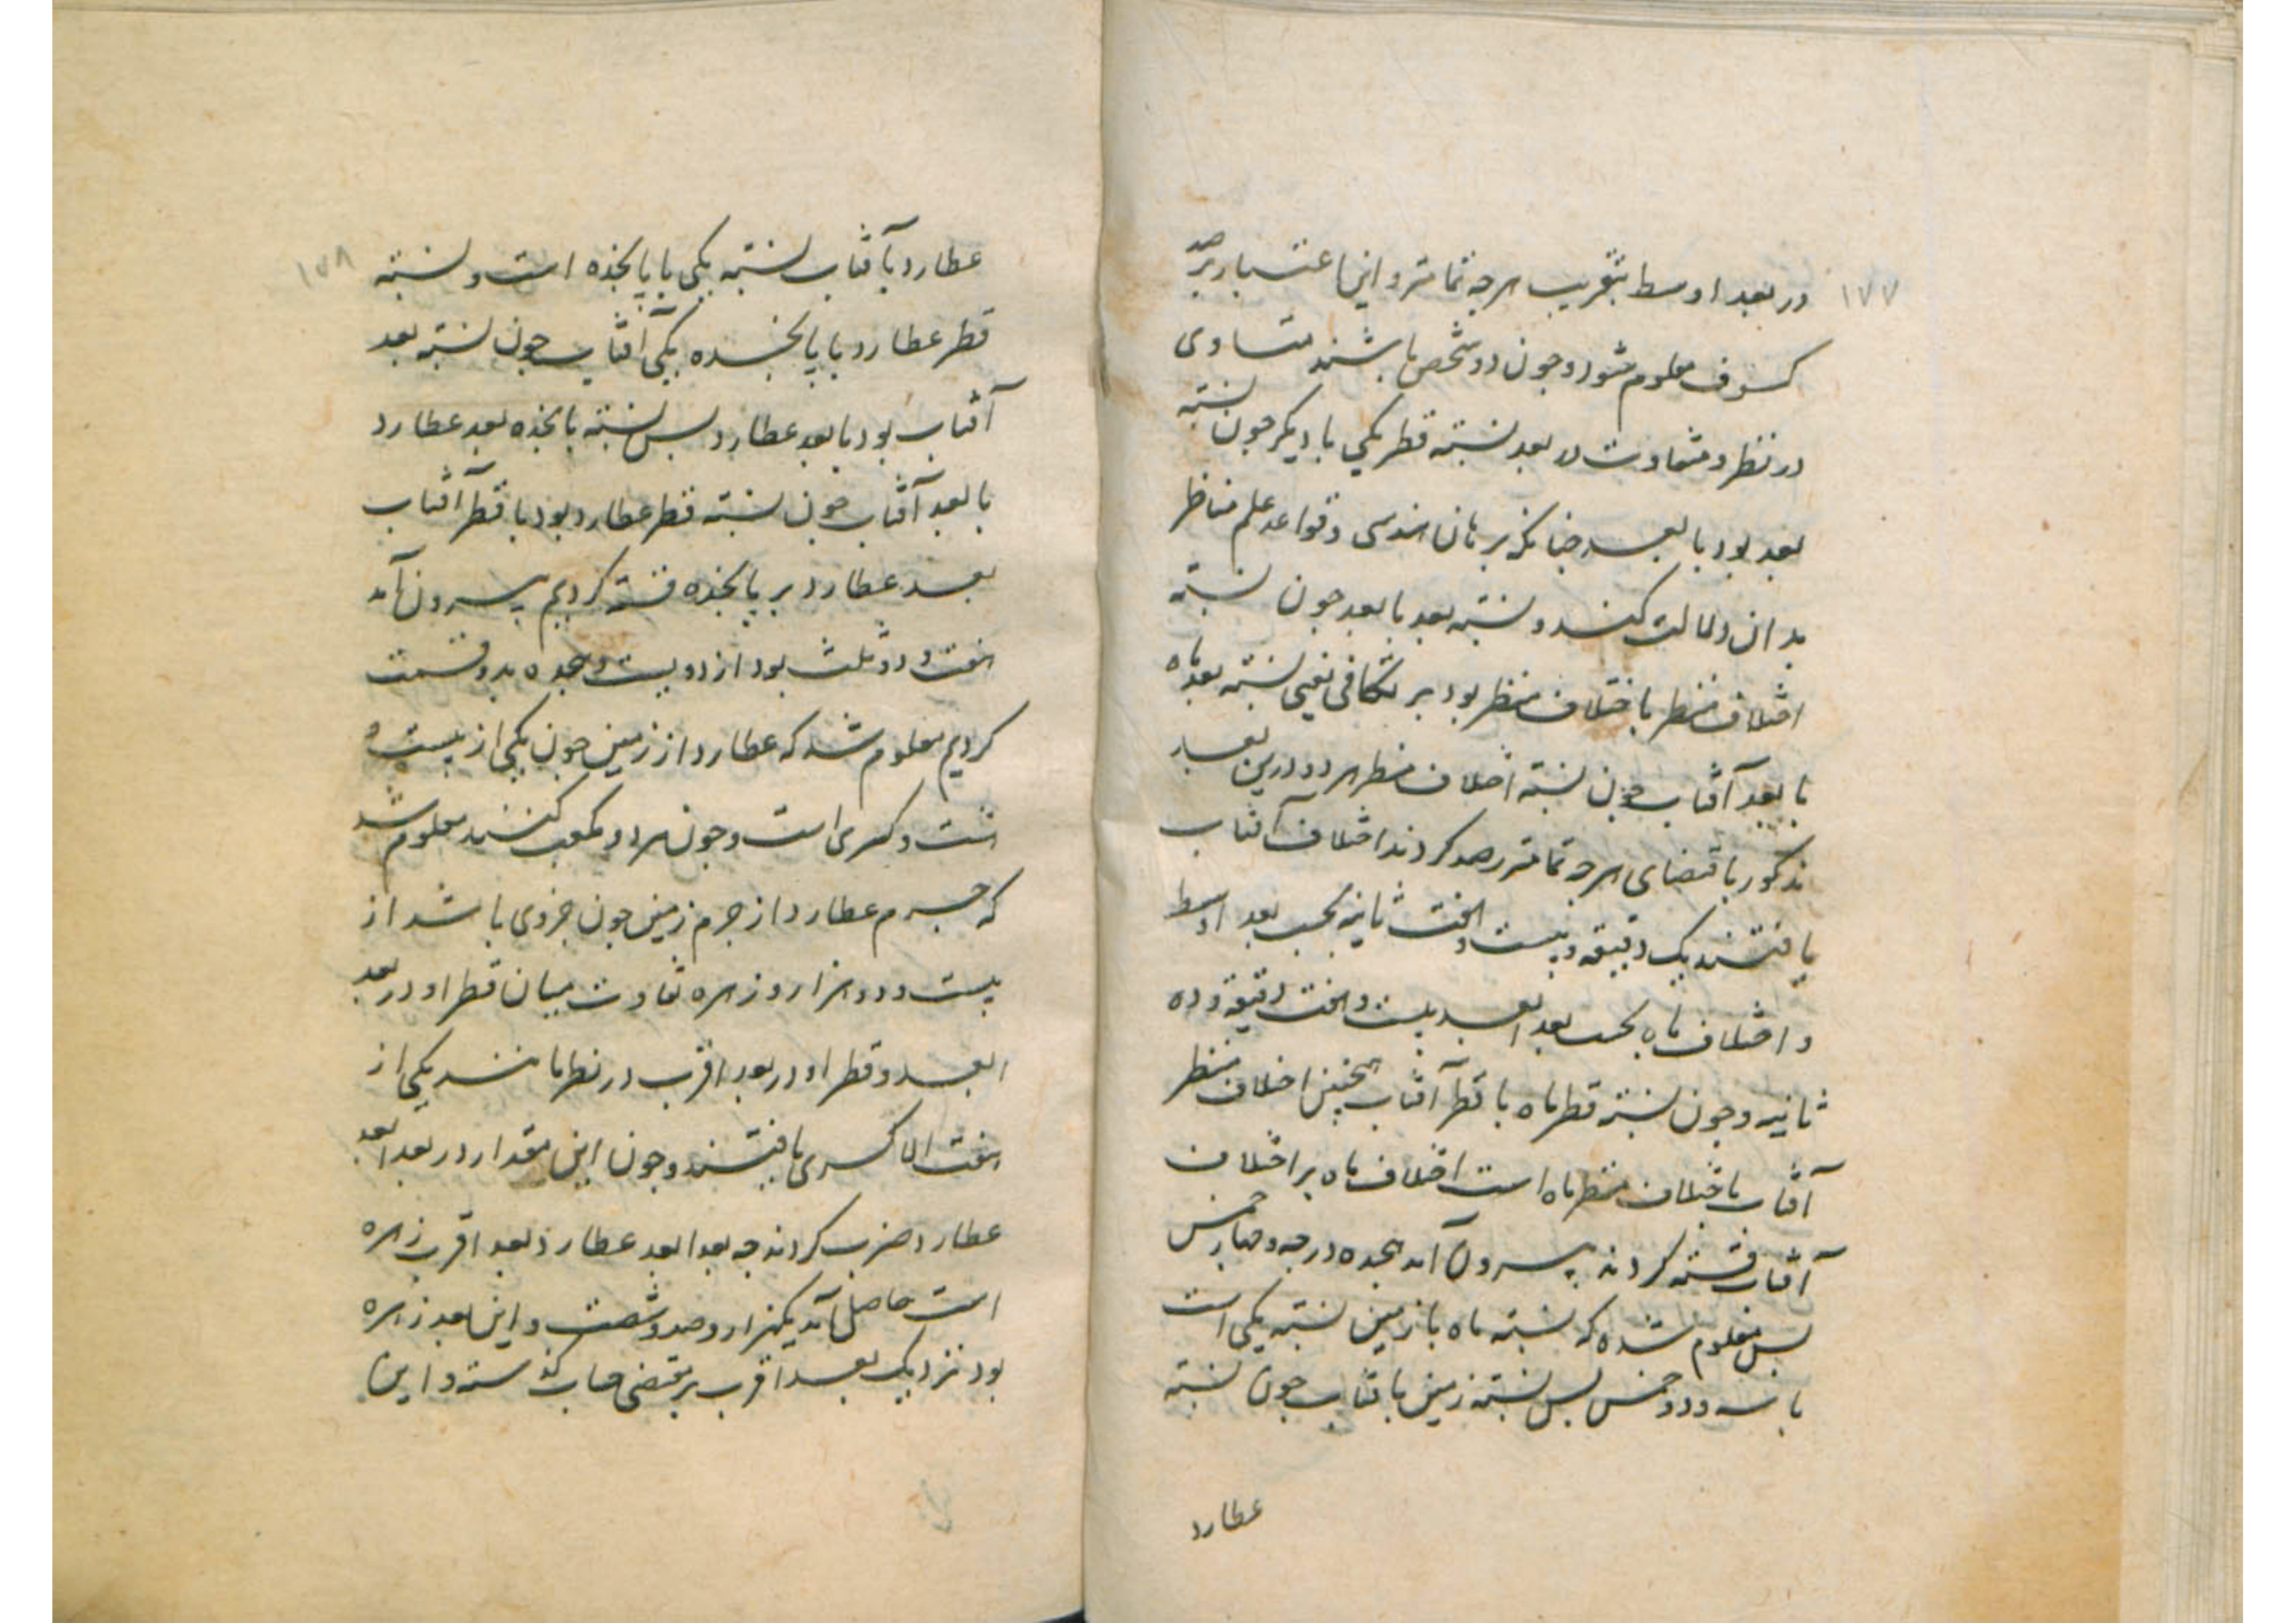 ۱۷۷
در بعد اوسط بتقریب هرچه تمامتر و این اعتبار برصد
کسوف معلوم شود و چون دو شخص باشند متساوی
در نظر و متفاوت در بعد نسبته قطر یکی با دیگر چون نسبته
بعد بود با بعد چنانکه برهان هندسی و قواعد علم مناظر
بدان دلالت کند و نسبته بعد با بعد چون نسبته
اختلاف منظر باختلاف منظر بود بر تکافی یعنی نسبته بعد ماه
با بعد آفتاب چون نسبته اختلاف منظر هر دو درین بعد
مذکور باقتضای هرچه تمامتر رصد کردند اختلاف آفتاب
یافتند یک دقیقه و بیست و هفت ثانیه بحسب بعد اوسط
و اختلاف ماه بحسب بعد ابعد بیست و هفت دقیقه و ده
ثانیه و چون نسبته قطر ماه با قطر آفتاب همچنین اختلاف منظر
آفتاب باختلاف منظر ماه است اختلاف ماه بر اختلاف
آفتاب قسمته کردند بیرون آمد هجده درجه و چهار خمس
پس معلوم شده که نسبته ماه با زمین نسبته یکی است
با سه و دو خمس پس نسبته زمین بافتاب چون نسبته
عطارد
۱۷۸
عطارد بآفتاب نسبته یکی با پانجده است و نسبته
قطر عطارد با پانجده یکی آفتاب چون نسبته بعد
آفتاب بود با بعد عطارد پس نسبته پانجده بعد عطارد
با بعد آفتاب چون نسبته قطر عطارد بود با قطر آفتاب
بعد عطارد بر پانجده قسمته کردیم بیرون آمد
هفت و دو ثلث بود از دویست و هجده بدو قسمت
کردیم معلوم شد که عطارد از زمین چون یکی از بیست و
هشت و کسری است و چون هر دو مکعب کنند معلوم شد
که جرم عطارد از جرم زمین چون جزوی باشد از
بیست و دو هزار و زهره تفاوت میان قطر او در بعد
ابعد و قطر او در بعد اقرب در نظر مانند یکی از
هفت الا کسری یافتند و چون این مقدار در بعد ابعد
عطارد ضرب کردند چه بعد ابعد عطارد بعد اقرب زهره
است حاصل آمد یکهزار و صد و شصت و این بعد زهره
بود نزدیک بعد اقرب بر مقتضی حساب گذشته و این